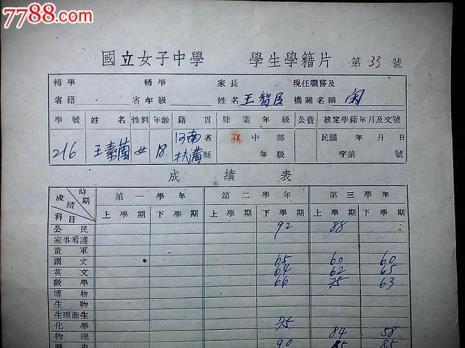 7788.com
國立女子中學 學生學籍片 第 33 號
轉學 轉學 家長 現任職務及
省籍 省年級 姓名 王智臣 機關名稱 閑
學號 姓名 性別 年齡 籍貫 肄業年級 公費 核定學籍年月及文號
216 王素蘭 女 18 河南省 扶溝縣 中部 民國 年 月 日
字第 號
成績表
時期 成績 科目 第一學年 第二學年 第三學年
上學期 下學期 上學期 下學期 上學期 下學期
公民 92 88
家事看護
童軍
國文 65 60 60
英文 64 62 65
數學 66 75 63
博物
生物
生理衛生
化學 75
物理 84 58
歷史 90 85 85